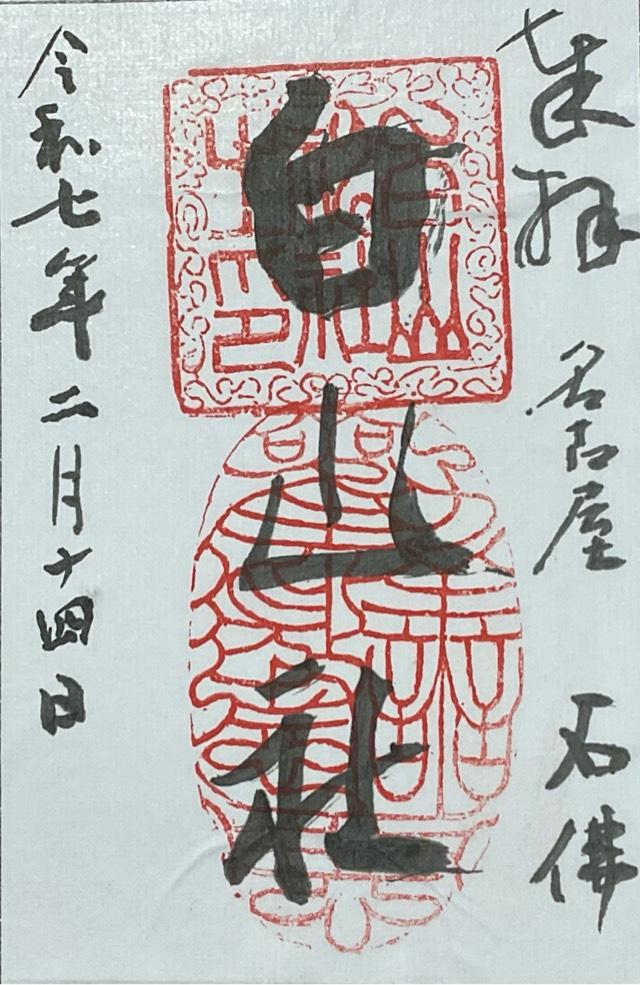 奉拝 名古屋 石佛
白山社
令和七年二月十四日